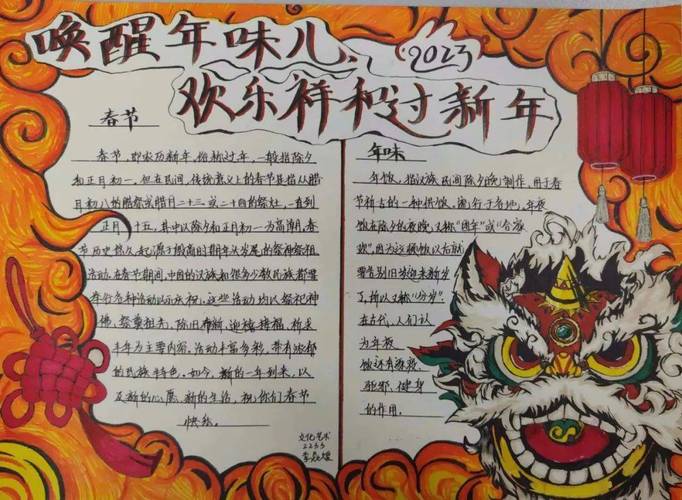 唤醒年味儿、
2023
欢乐祥和过新年
春节
春节，即农历新年，俗称过年，一般指除夕
和正月初一。但在民间，传统意义上的春节是指从腊
月初八的腊祭或腊月二十三或二十四的祭灶，一直到
正月十五，其中以除夕和正月初一为高潮。春
节历史悠久，起源于殷商时期年头岁尾的祭神祭祖
活动。在春节期间，中国的汉族和很多少数民族都要
举行各种活动以示庆祝。这些活动均以祭祀神
佛、祭奠祖先、除旧布新、迎禧接福、祈求
丰年为主要内容。活动丰富多彩，带有浓郁
的民族特色。如今，新的一年到来，以
及新的心愿，新的生活，祝你们春节
快乐。
文化艺术
2233
李
年味
年饭，指汉族民间除夕 制作，用于春
节祈吉的一种供饭，流行于各地，年夜
饭在除夕的夜晚，又称“团年”或“合家
欢”，因为这顿饭以后就
要告别旧岁迎来新岁
了，所以又称“分岁”。
在古代，人们认
为年夜
饭还有逐疫、
驱邪、健身
的作用。